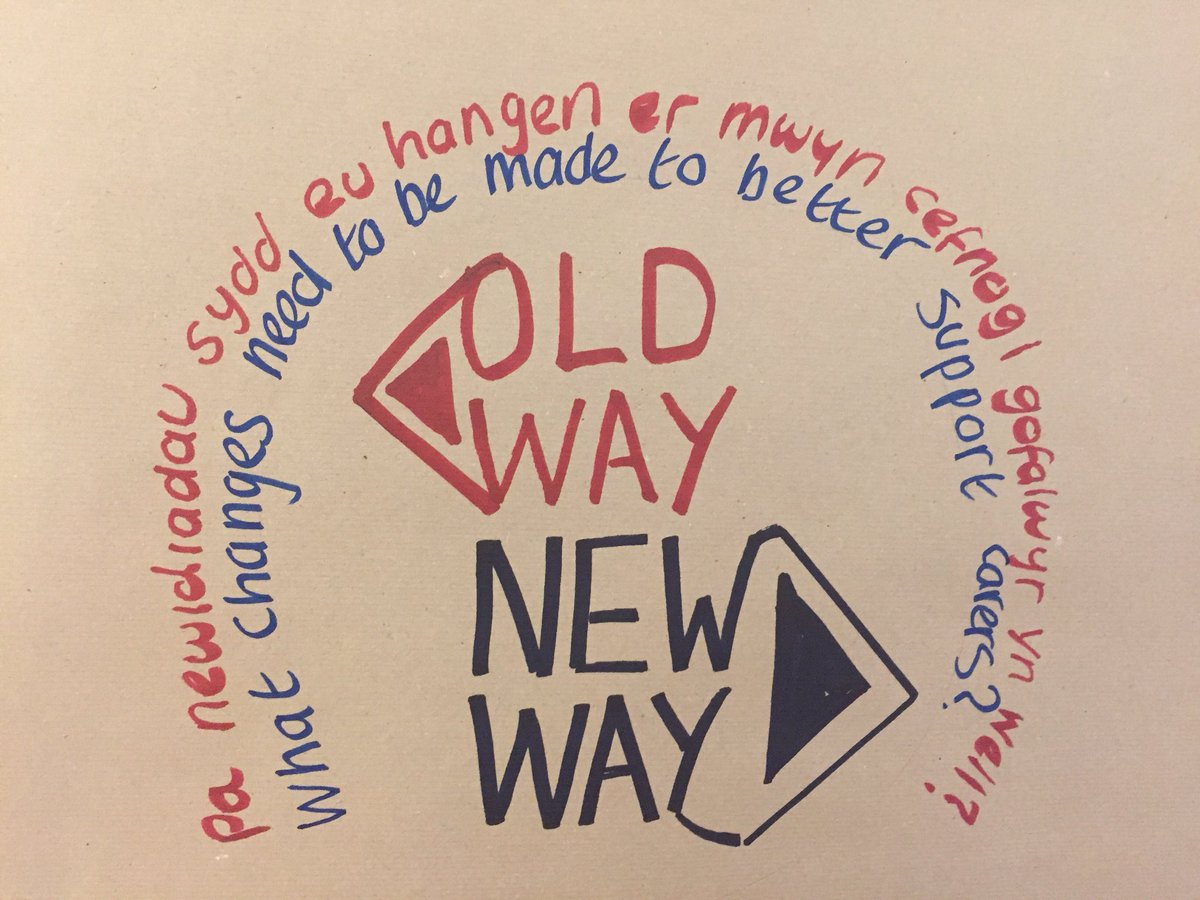 pa newidiadau sydd eu hangen er mwyn cefnogi gofalwyr yn well?
What changes need to be made to better support carers?
OLD
WAY
NEW
WAY